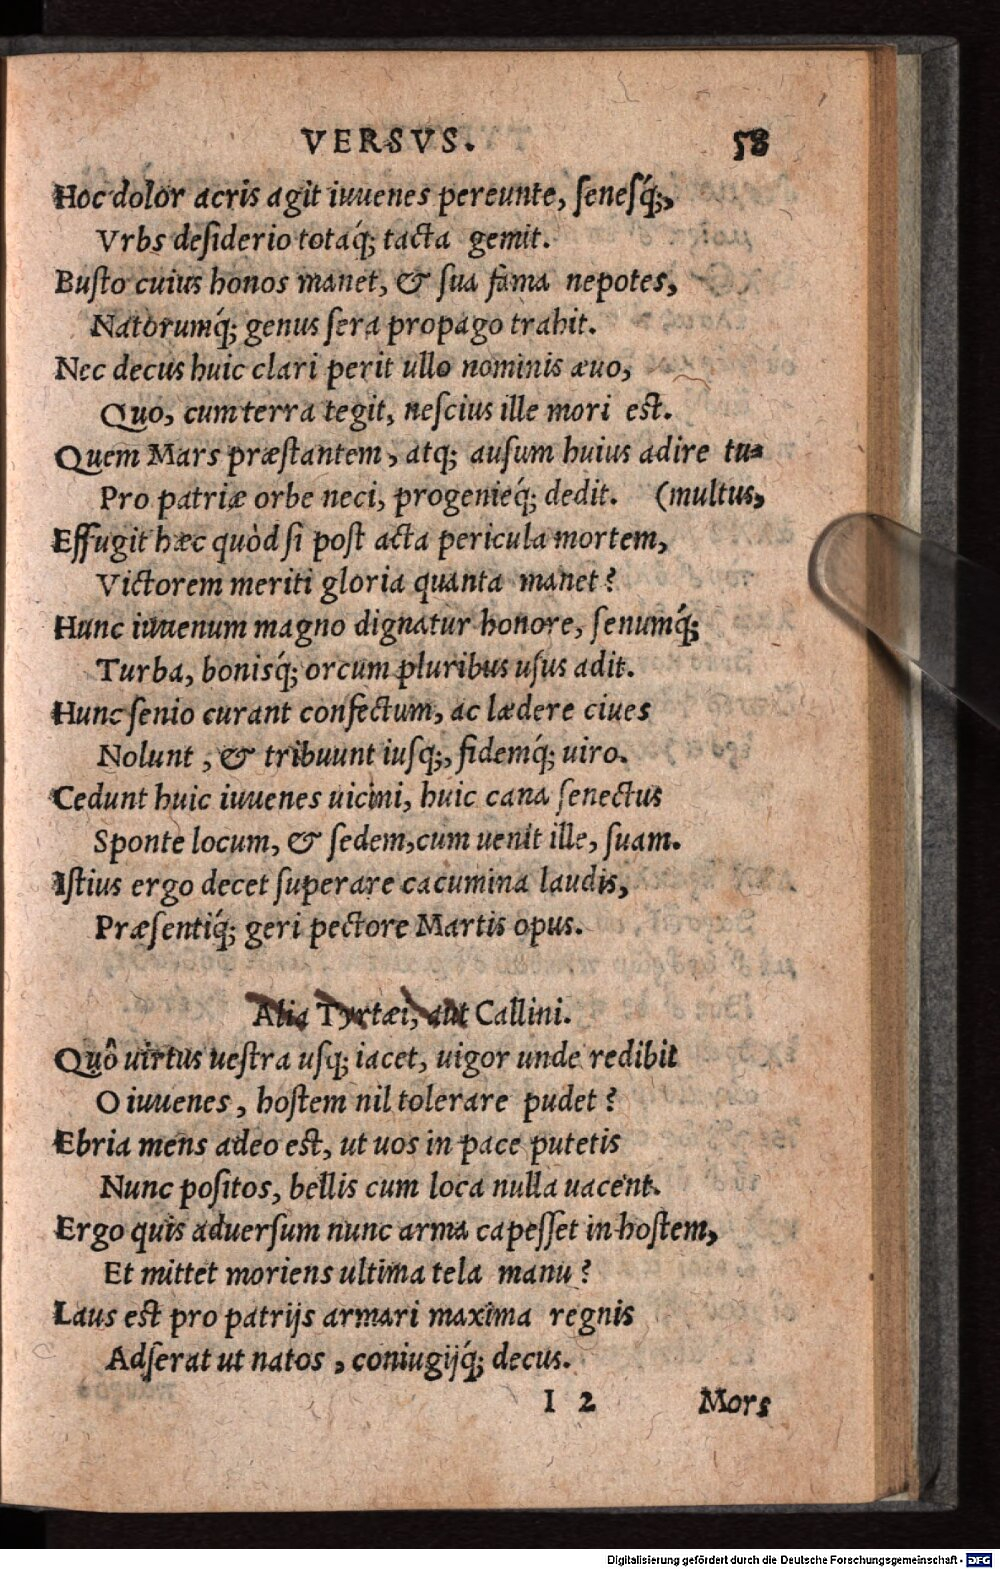 VERSVS. 58
Hoc dolor acris agit iuuenes pereunte, senesq́;,
Vrbs desiderio totaq́; tacta gemit.
Busto cuius honos manet, & sua fama nepotes,
Natorumq́; genus sera propago trahit.
Nec decus huic clari perit ullo nominis æuo,
Quo, cum terra tegit, nescius ille mori est.
Quem Mars præstantem, atq; ausum huius adire tu-
Pro patriæ orbe neci, progenieq́; dedit. (multus,
Effugit hæc quòd si post acta pericula mortem,
Victorem meriti gloria quanta manet?
Hunc iuuenum magno dignatur honore, senumq́;
Turba, bonisq́; orcum pluribus usus adit.
Hunc senio curant confectum, ac lædere ciues
Nolunt, & tribuunt iusq;, fidemq́; uiro.
Cedunt huic iuuenes uicini, huic cana senectus
Sponte locum, & sedem, cum uenit ille, suam.
Istius ergo decet superare cacumina laudis,
Præsentiq́; geri pectore Martis opus.
Alia Tyrtæi, aut Callini.
Quô uirtus uestra usq; iacet, uigor unde redibit
O iuuenes, hostem nil tolerare pudet?
Ebria mens adeo est, ut uos in pace putetis
Nunc positos, bellis cum loca nulla uacent.
Ergo quis aduersum nunc arma capesset in hostem,
Et mittet moriens ultima tela manu?
Laus est pro patrijs armari maxima regnis
Adserat ut natos, coniugijq́; decus.
I 2 Mors
Digitalisierung gefördert durch die Deutsche Forschungsgemeinschaft - DFG